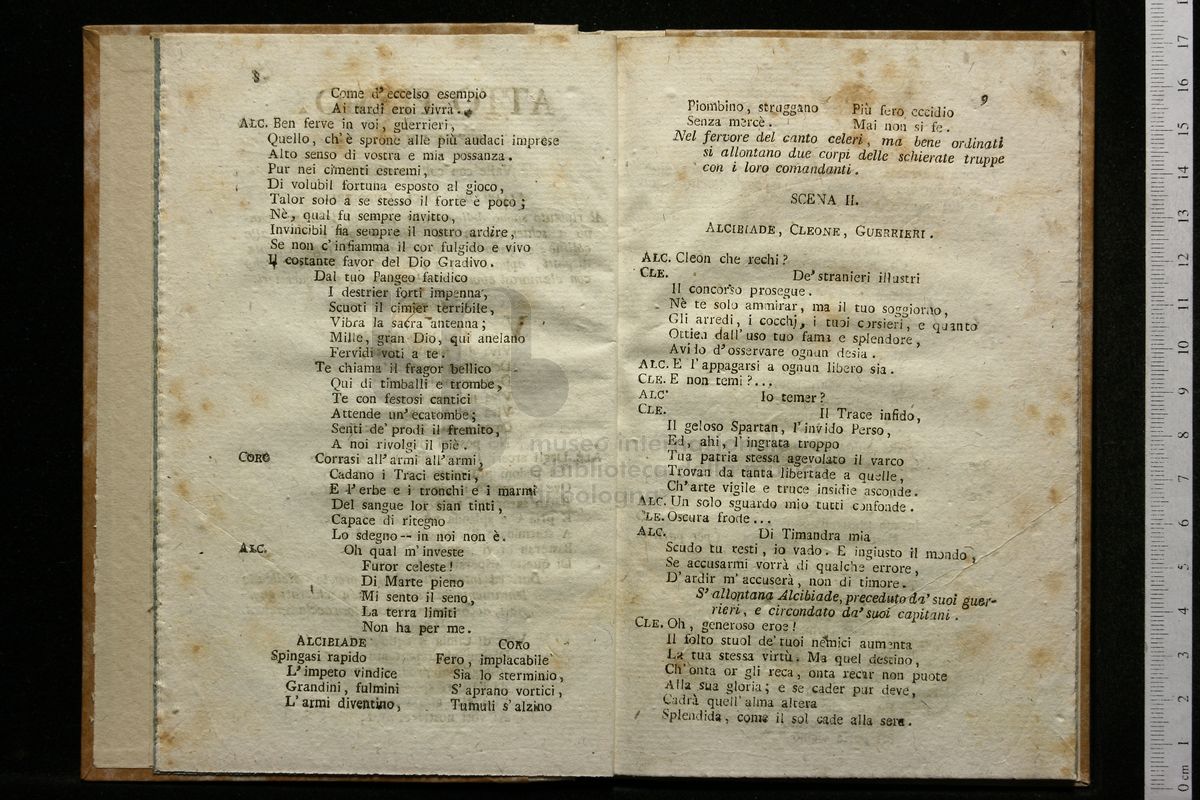 8
Come d'eccelso esempio
Ai tardi eroi vivrà.
ALC. Ben ferve in voi, guerrieri,
Quello, ch'è sprone alle più audaci imprese
Alto senso di vostra e mia possanza.
Pur nei cimenti estremi,
Di volubil fortuna esposto al gioco,
Talor solo a se stesso il forte è poco;
Nè, qual fu sempre invitto,
Invincibil fia sempre il nostro ardire,
Se non c'infiamma il cor fulgido e vivo
Il costante favor del Dio Gradivo.
Dal tuo Pangeo fatidico
I destrier forti impenna,
Scuoti il cimier terribile,
Vibra la sacra antenna;
Mille, gran Dio, qui anelano
Fervidi voti a te.
Te chiama il fragor bellico
Qui di timballi e trombe,
Te con festosi cantici
Attende un' ecatombe;
Senti de' prodi il fremito,
A noi rivolgi il piè.
CORO Corrasi all' armi all' armi,
Cadano i Traci estinti,
E l' erbe e i tronchi e i marmi
Del sangue lor sian tinti,
Capace di ritegno
Lo sdegno -- in noi non è.
ALC. Oh qual m' investe
Furor celeste!
Di Marte pieno
Mi sento il seno,
La terra limiti
Non ha per me.
ALCIBIADE CORO
Spingasi rapido Fero, implacabile
L' impeto vindice Sia lo sterminio,
Grandini, fulmini S' aprano vortici,
L' armi diventino, Tumuli s' alzino
9
Piombino, struggano Più fero eccidio
Senza mercè. Mai non si fe.
Nel fervore del canto celeri, ma bene ordinati
si allontano due corpi delle schierate truppe
con i loro comandanti.
SCENA II.
ALCIBIADE, CLEONE, GUERRIERI.
ALC. Cleon che rechi?
CLE. De' stranieri illustri
Il concorso prosegue.
Nè te solo ammirar, ma il tuo soggiorno,
Gli arredi, i cocchj, i tuoi corsieri, e quanto
Ottien dall' uso tuo fama e splendore,
Avido d' osservare ognun desia.
ALC. E l' appagarsi a ognun libero sia.
CLE. E non temi?...
ALC. Io temer?
CLE. Il Trace infido,
Il geloso Spartan, l' invido Perso,
Ed, ahi, l' ingrata troppo
Tua patria stessa agevolato il varco
Trovan da tanta libertade a quelle,
Ch' arte vigile e truce insidie asconde.
ALC. Un solo sguardo mio tutti confonde.
CLE. Oscura frode...
ALC. Di Timandra mia
Scudo tu resti, io vado. E ingiusto il mondo,
Se accusarmi vorrà di qualche errore,
D' ardir m' accuserà, non di timore.
S' allontana Alcibiade, preceduto da' suoi guer-
rieri, e circondato da' suoi capitani.
CLE. Oh, generoso eroe!
Il folto stuol de' tuoi nemici aumenta
La tua stessa virtù. Ma quel destino,
Ch' onta or gli reca, onta recar non puote
Alla sua gloria; e se cader pur deve,
Cadrà quell' alma altera
Splendida, come il sol cade alla sera.
museo inter
e biblioteca
di bologn
0 cm 1 2 3 4 5 6 7 8 9 10 11 12 13 14 15 16 17